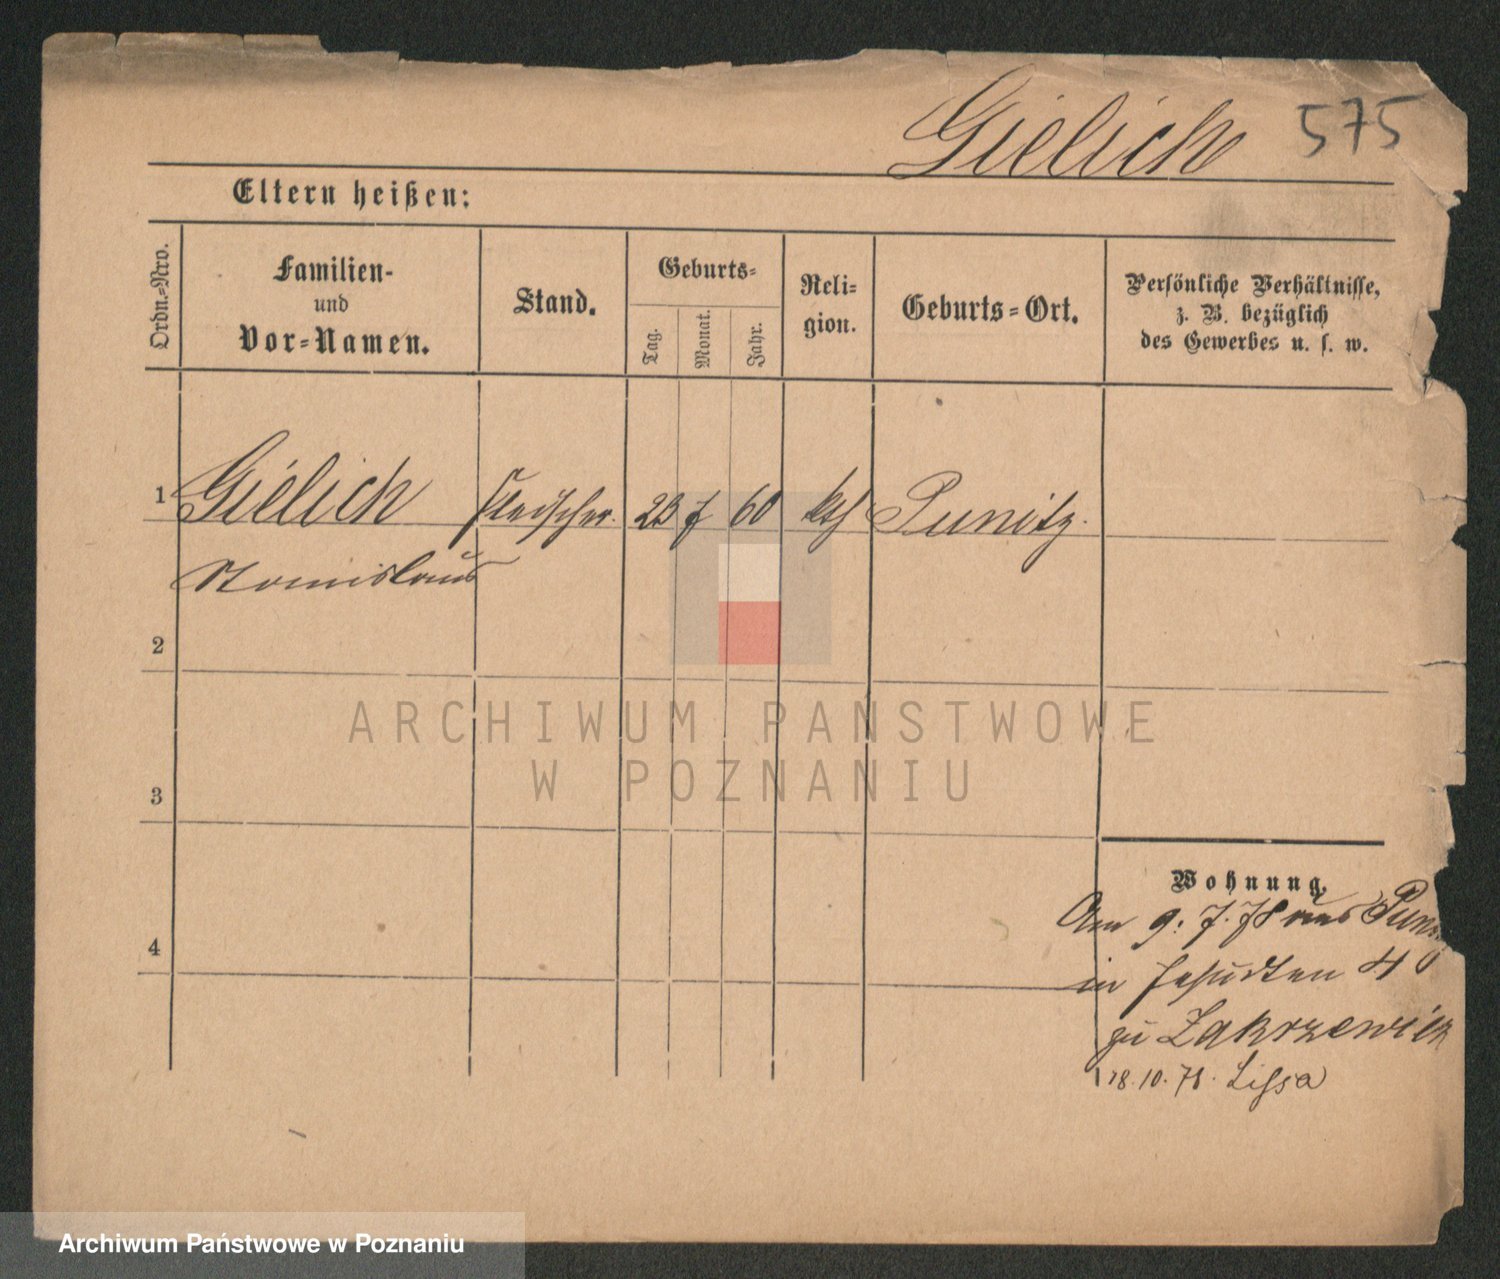 Gielich 575
Eltern heißen:
Ordn.=Nro.
Familien-
und
Vor=Namen.
Stand.
Geburts=
Tag.
Monat.
Jahr.
Reli=
gion.
Geburts=Ort.
Persönliche Verhältnisse,
z. B. bezüglich
des Gewerbes u. s. w.
1 Gielich Fleischer. 23 7 60 kth Punitz.
Stanislaus
2
3
4
Wohnung.
Am 9. 7. 78 aus Pun
in 40
zu Zakrzewicz
18.10.78. Lissa
ARCHIWUM PAŃSTWOWE
W POZNANIU
Archiwum Państwowe w Poznaniu